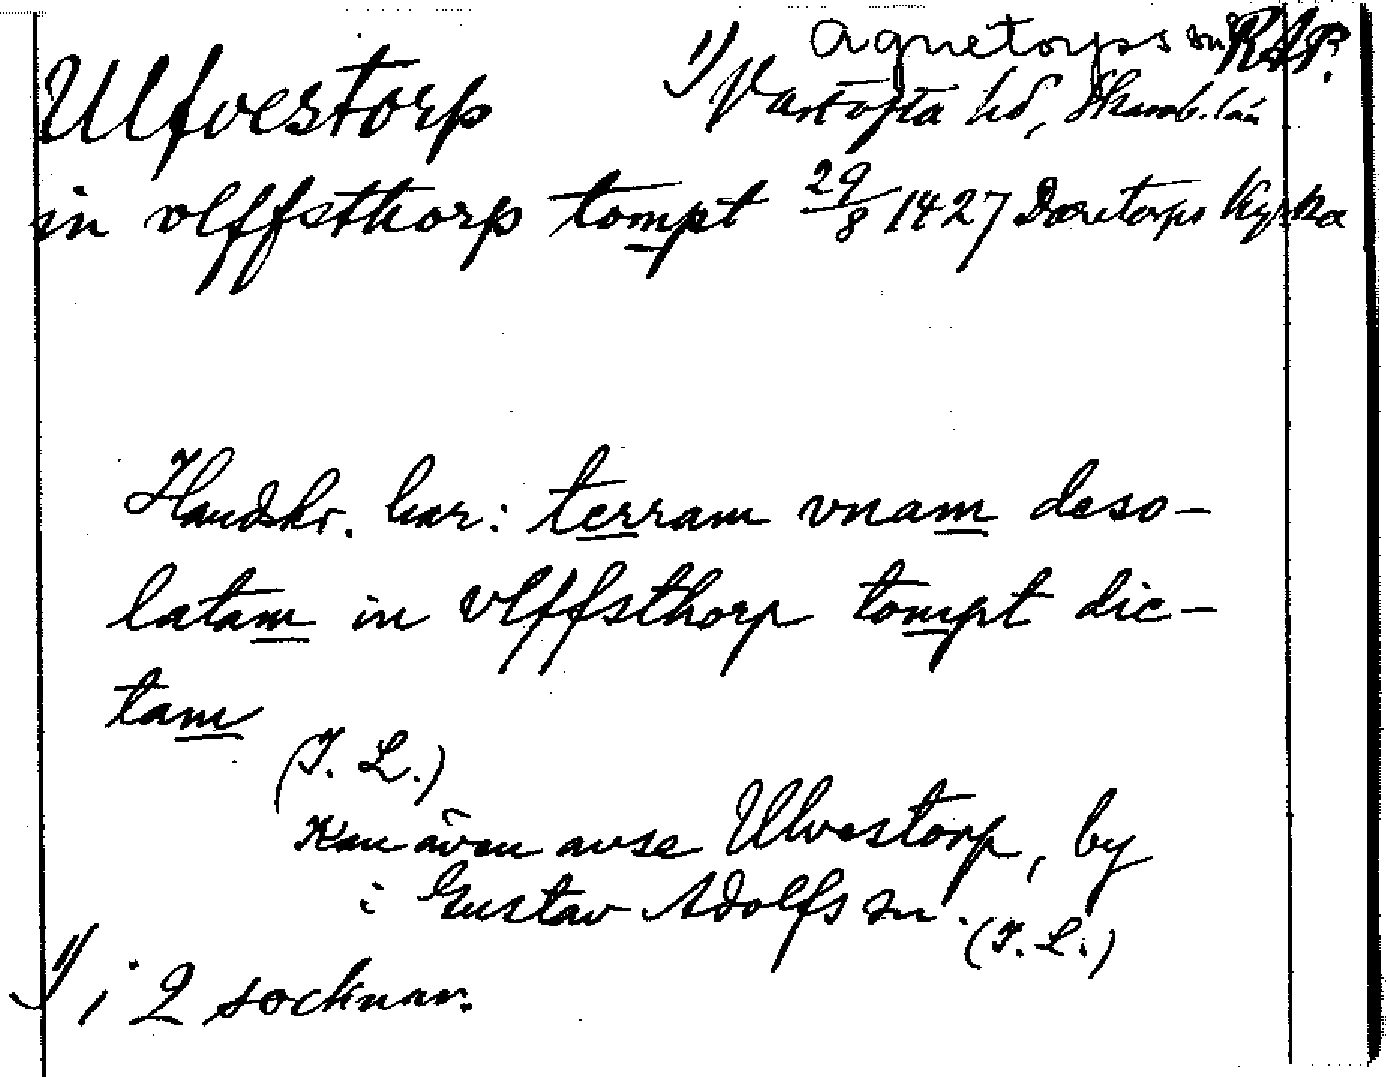 Agnetorps sn RAP.
Ulfvestorp 1) Vartofta hd, Skarab. län
in vlffsthorp tompt 29/8 1427 Daretorps kyrka
Handskr. har: terram vnam deso-
latam in vlffsthorp tompt dic-
tam
(I. L.)
Kan även avse Ulvestorp, by
i Gustav Adolfs sn.
(I. L.)
1) i 2 socknar.